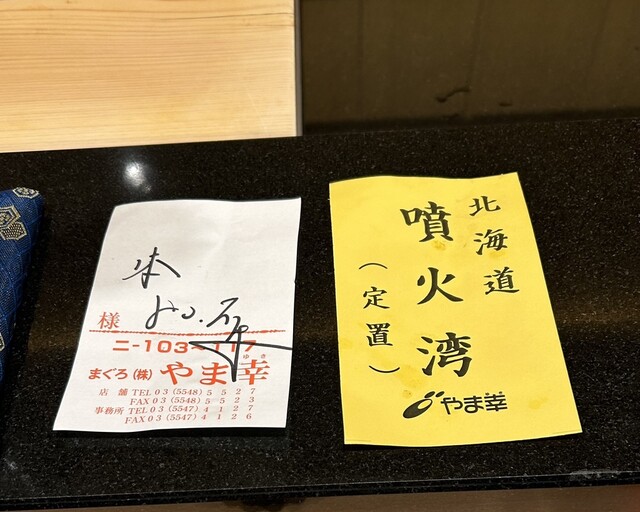 様
ニ-103-117
まぐろ(株)やま幸
ゆき
店舗 TEL 03 (5548) 5527
FAX 03 (5548) 5523
事務所 TEL 03 (5547) 4127
FAX 03 (5547) 4126
北海道
噴火湾
(定置)
やま幸